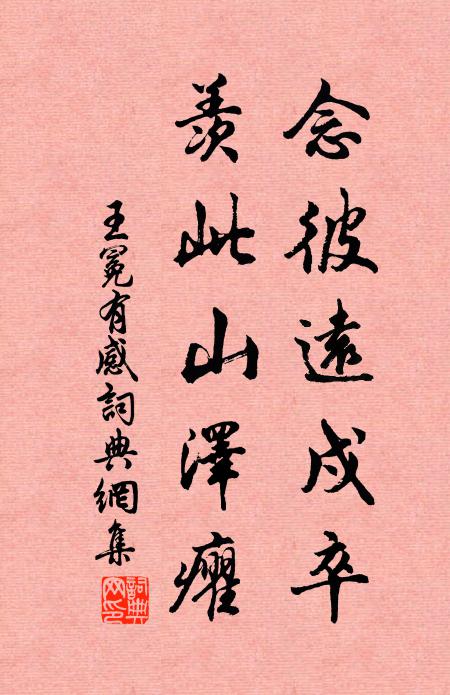 念彼遠戍卒
羨此山澤癯
王冕有感詞典網集
詞典網印